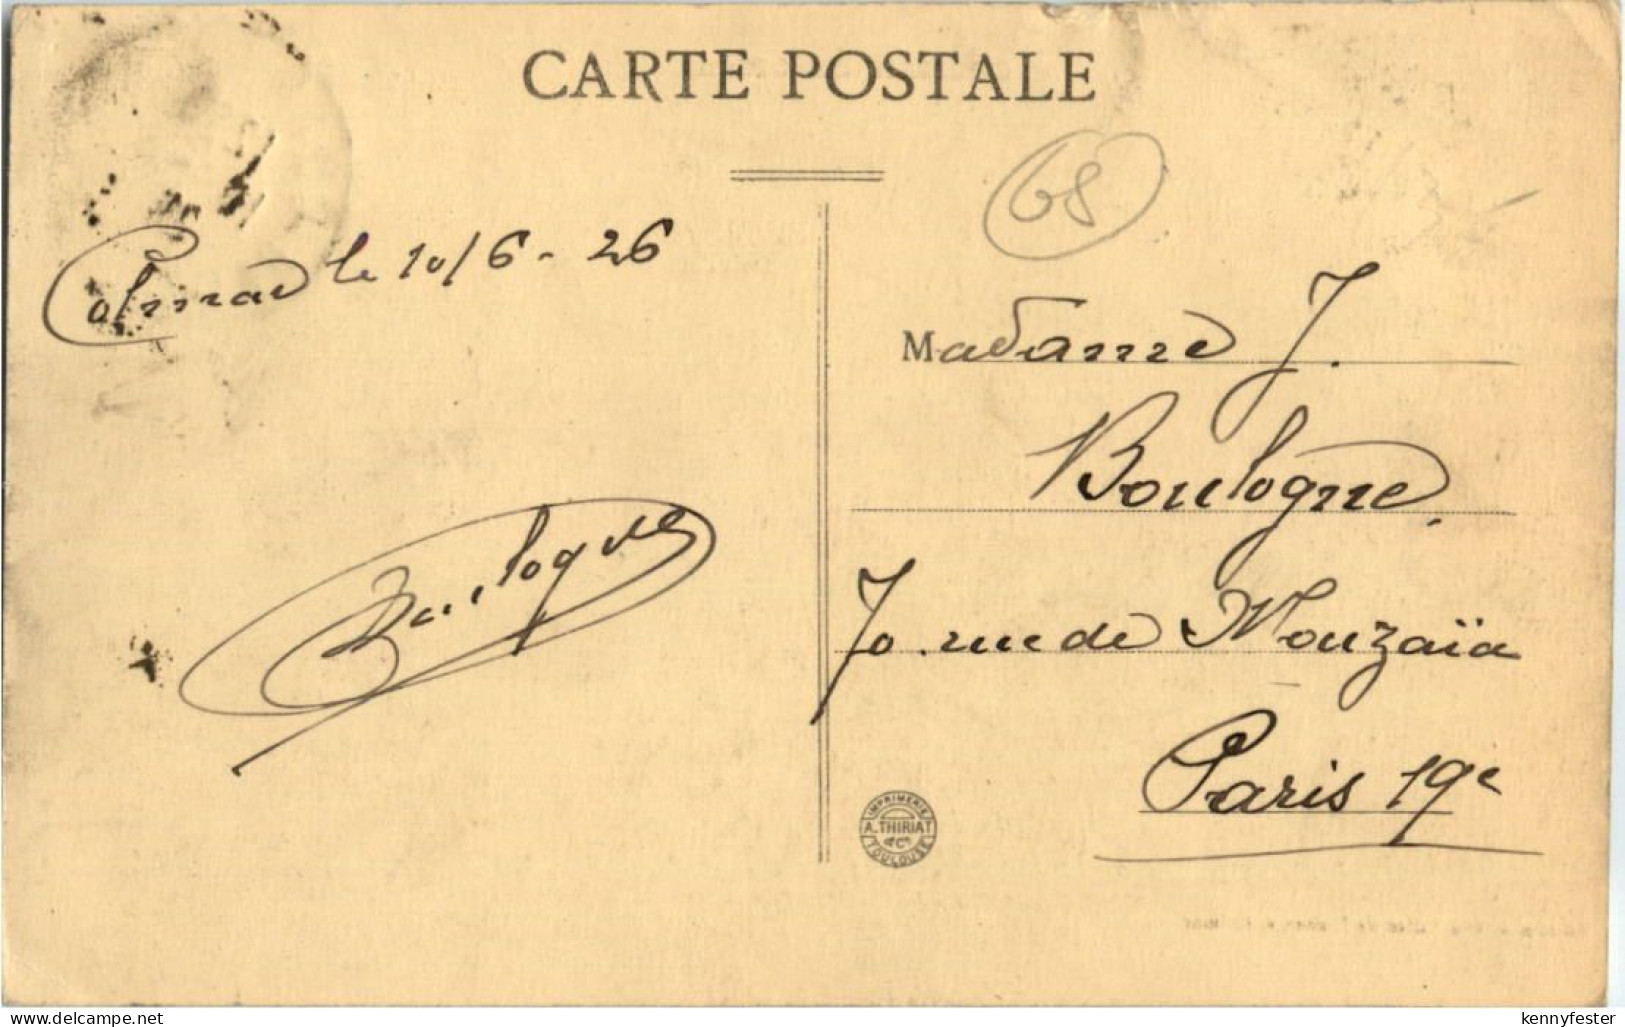 CARTE POSTALE
68
Colmar le 10/6 - 26
Boulogne
Madame J.
Boulogne,
70. rue de Mouzaïa
Paris 19e
IMPRIMERIE
A. THIRIAT
& Cie
TOULOUSE
www.delcampe.net
kennyfester